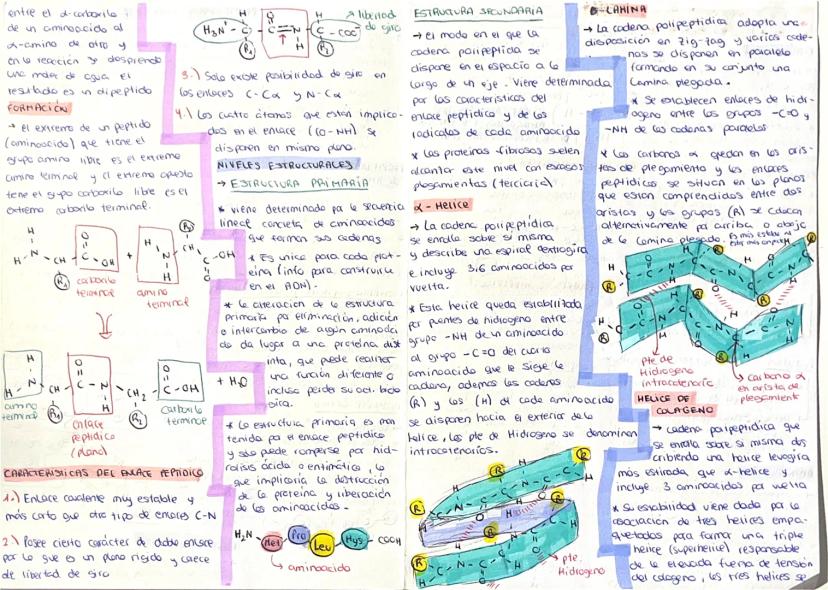 entre el α-carboxilo
de un aminoácido al
α-amino de otro y
en la reacción se desprende
una molec de agua el
resultado es un dipéptido
FORMACIÓN
→ el extremo de un péptido
(aminoácido) que tiene el
grupo amino libre es el extremo
amino terminal y el extremo opuesto
tiene el grupo carboxilo libre es el
extremo carboxilo terminal.
carboxilo
terminal
amino
terminal
amino
terminal
enlace
peptídico
(plano)
carboxilo
terminal
+ H₂O
CARACTERÍSTICAS DEL ENLACE PEPTÍDICO
1.) Enlace covalente muy estable y
más corto que otro tipo de enlaces C-N
2.) Posee cierto carácter de doble enlace
por lo que es un plano rígido y carece
de libertad de giro
→ libertad
de giro
3.) Solo existe posibilidad de giro en
los enlaces C-Cα y N-Cα
4.) Los cuatro átomos que están implica-
dos en el enlace (CO-NH) se
disponen en mismo plano.
NIVELES ESTRUCTURALES
→ ESTRUCTURA PRIMARIA
* viene determinado por la secuencia
lineal concreta de aminoácidos
que forman sus cadenas
* Es única para cada prot-
eína (info para construirla
en el ADN).
* La alteración de la estructura
primaria por eliminación, adición
o intercambio de algún aminoáci
do da lugar a una proteína dist
inta, que puede realizar
una función diferente o
incluso perder su act. bioló
gica.
* La estructura primaria es man
tenida por el enlace peptídico
y solo puede romperse por hid-
rólisis ácida o enzimática, lo
que implicaría la destrucción
de la proteína y liberación
de los aminoácidos.
H₂N - Met - Pro - Leu - Hys - COOH
→ aminoácido
ESTRUCTURA SECUNDARIA
→ el modo en el que la
cadena polipeptídica se
dispone en el espacio a lo
largo de un eje. Viene determinada
por las características del
enlace peptídico y de los
radicales de cada aminoácido
* Las proteínas fibrosas suelen
alcanzar este nivel con escasos
plegamientos (terciaria)
α-Helice
→ La cadena polipeptídica
se enrolla sobre sí misma
y describe una espiral dextrógira
e incluye 3,6 aminoácidos por
vuelta.
* Esta helice queda estabilizada
por puentes de hidrógeno entre
grupo -NH de un aminoácido
al grupo -C=O del cuarto
aminoácido que le sigue la
cadena, además las cadenas
(R) y los (H) de cada aminoácido
se disponen hacia el exterior de la
helice, los pte de Hidrogeno se denominan
intracatenarios.
→ pte.
Hidrogeno
β-LÁMINA
→ La cadena polipeptídica adopta una
disposición en zig-zag y varias cade-
nas se disponen en paralelo
formando en su conjunto una
lámina plegada.
* Se establecen enlaces de hidr-
ógeno entre los grupos -C=O y
-NH de las cadenas paralelas
* Los carbonos α quedan en las aris-
tas de plegamiento y los enlaces
peptídicos se sitúan en los planos
que están comprendidos entre dos
aristas y los grupos (R) se colocan
alternativamente por arriba o abajo
de la lámina plegada.
pte de
Hidrogeno
intracatenario
→ carbono α
en arista de
plegamiento
HELICE DE
COLAGENO
→ cadena polipeptídica que
se enrolla sobre sí misma des
cribiendo una helice levógira
más estirada que α-helice
incluye 3 aminoácidos por vuelta
* Su estabilidad viene dada por la
asociación de tres helices empa-
quetadas para formar una triple
helice (superhelice) responsable
de la elevada fuerza de tensión
del colageno, las tres helices se